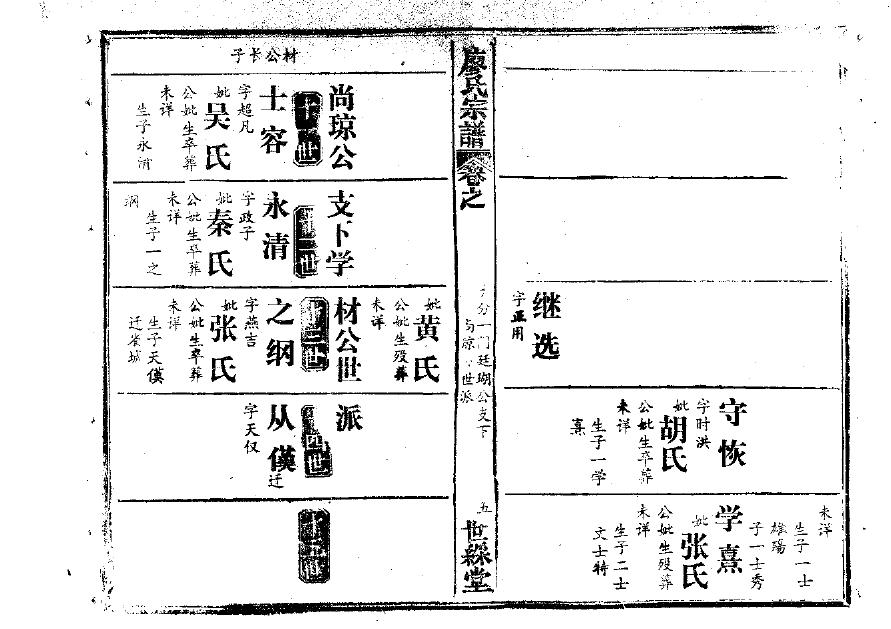 继选
字正用
守恢
字时洪
妣
胡氏
公妣生卒葬
未详
生子一学
熹
未详
生子一士
雄
子一士秀
学熹
妣
张氏
公妣生殁葬
未详
生子二士
文士特
廖氏宗譜
卷之
一门廷瑚公支下
世派
五
世綵堂
尚琼公
世
士容
字超凡
妣
吴氏
公妣生卒葬
未详
生子永清
支下学
世
永清
字政子
妣
秦氏
公妣生卒葬
未详
生子一之
纲
妣
黄氏
公妣生殁葬
未详
材公世
十三世
之纲
字燕吉
妣
张氏
公妣生卒葬
未详
生子天僕
迁省城
派
四世
从僕
迁
字天仅
世
材公长子